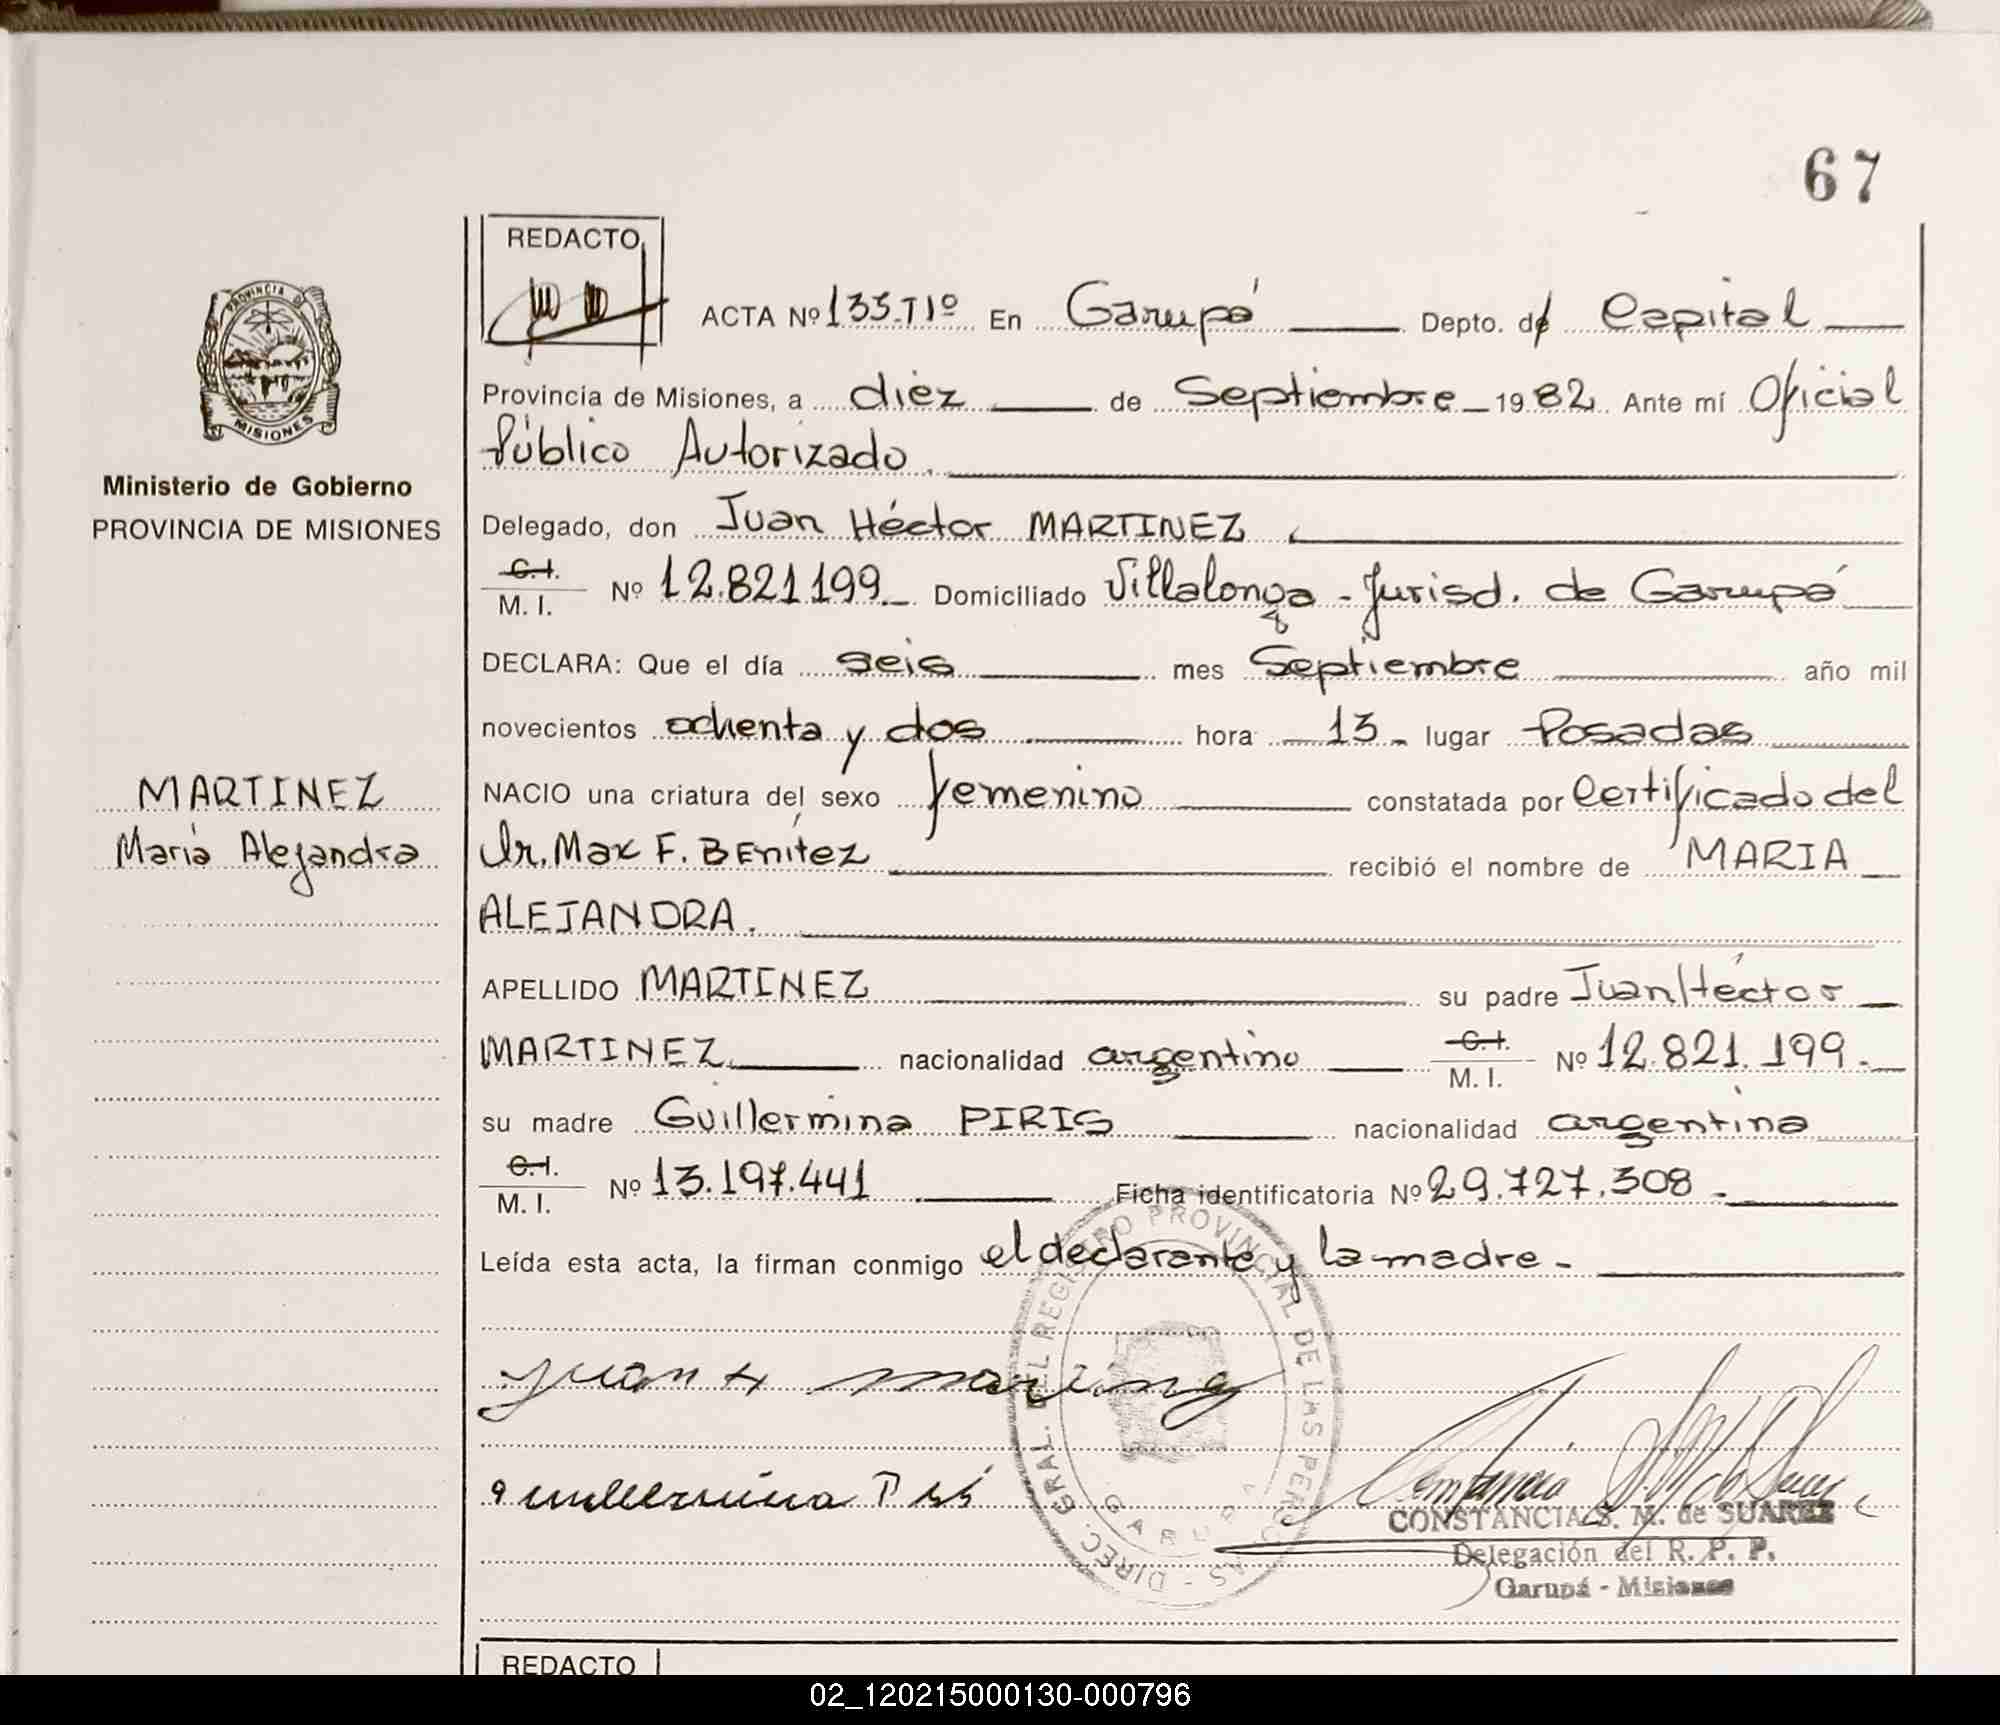 67
REDACTO
ACTA Nº 133-TIº En Garupá Depto. de Capital
PROVINCIA DE
MISIONES
Provincia de Misiones, a diez de Septiembre 1982. Ante mí Oficial
Público Autorizado.
Ministerio de Gobierno
PROVINCIA DE MISIONES
Delegado, don Juan Héctor MARTINEZ
C.I.
M. I. Nº 12.821.199 Domiciliado Villalonga - Jurisd. de Garupá
DECLARA: Que el día seis mes Septiembre año mil
novecientos ochenta y dos hora 13 lugar Posadas
MARTINEZ
María Alejandra
NACIO una criatura del sexo femenino constatada por Certificado del
Dr. Max F. BEnítez recibió el nombre de MARIA
ALEJANDRA.
APELLIDO MARTINEZ su padre Juan Héctor
MARTINEZ nacionalidad argentino C.I. M. I. Nº 12.821.199.-
su madre Guillermina PIRIS nacionalidad argentina
C.I.
M. I. Nº 13.197.441 Ficha identificatoria Nº 29.727.308 -
Leída esta acta, la firman conmigo el declarante y la madre.-
DIREC. GRAL. DEL REGISTRO PROVINCIAL DE LAS PERSONAS
GARUPA
Juan H
CONSTANCIA S. M. de SUAREZ
Delegación del R. P. P.
Garupá - Misiones
REDACTO
02_120215000130-000796